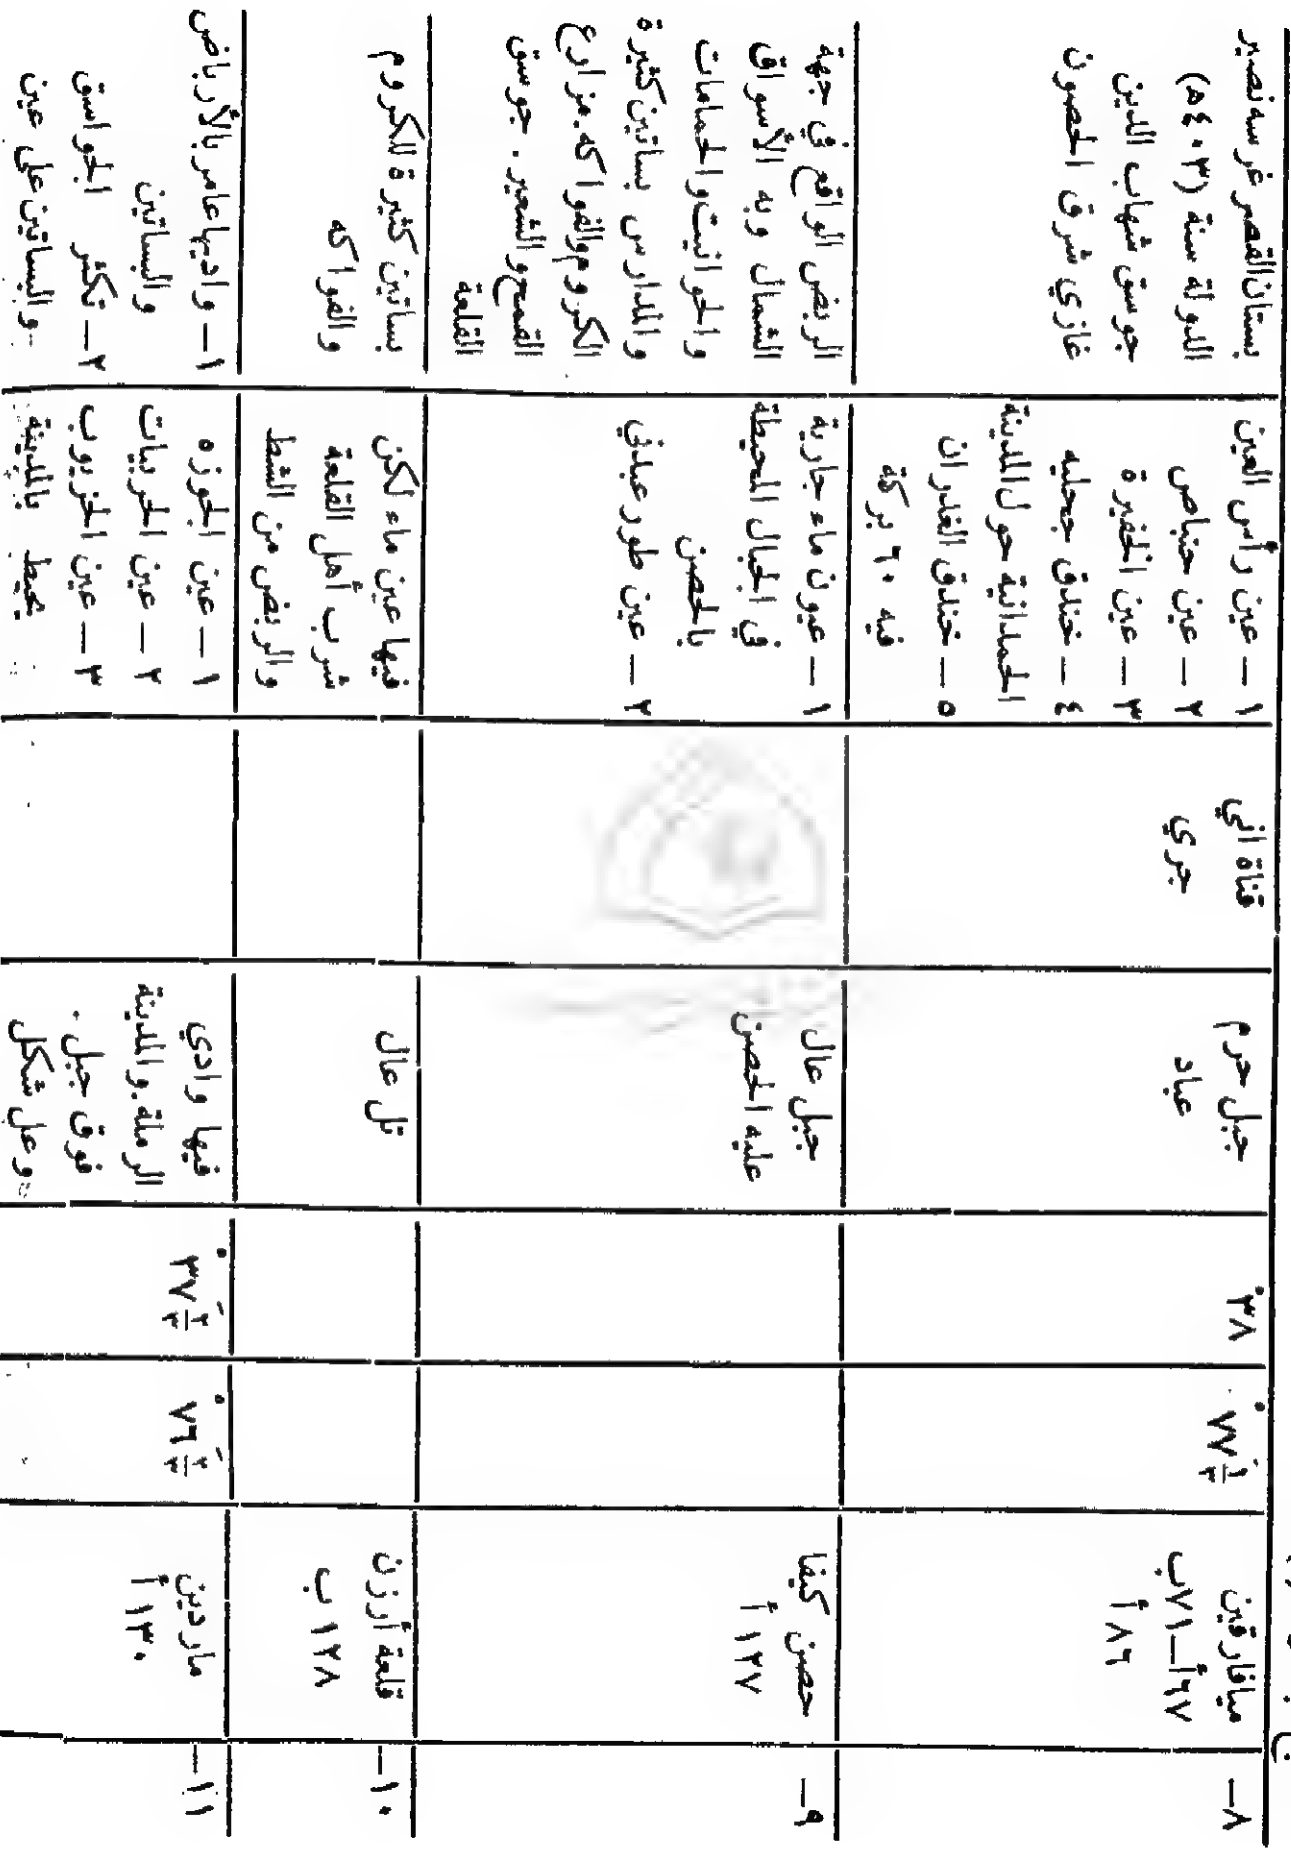 ٨–
ميافارقين
٦٧أ–٧١ب
٨٦أ
٧٧ ١/٣
٣٨
جبل حرم
عباد
قناة اني
جري
١ – عين رأس العين
٢ – عين حنباص
٣ – عين الحفيرة
٤ – خندق جحليه
الحمدانية حول المدينة
٥ – خندق الغدران
فيه ٦٠ بركة
بستان القصر غرسه نصير
الدولة سنة (٤٠٣ه)
جوسق شهاب الدين
غازي شرق الحصون
٩–
حصن كيفا
١٢٧أ
جبل عال
عليه الحصن
١ – عيون ماء جارية
في الجبال المحيطة
بالحصن
٢ – عين طور عبدلي
الربض الواقع في جهة
الشمال وبه الأسواق
والحوانيت والحمامات
والمدارس بساتين كثيرة
الكروم والفواكه. مزارع
القمح والشعير. جوسق
القلعة
١٠–
قلعة أرزن
١٢٨ ب
تل عال
فيها عين ماء لكن
شرب أهل القلعة
والربض من الشط
بساتين كثيرة للكروم
والفواكه
١١–
ماردين
١٣٠ أ
٧٦ ٢/٣
٣٧ ٢/٣
فيها وادي
الرملة. والمدينة
فوق جبل.
وعلى شكل
١ – عين الجوزه
٢ – عين الحربيات
٣ – عين الخربوب
يحيط بالمدينة
١ – واديها عامر بالأرباض
والبساتين
٢ – تكثر الجواسق
والبساتين على عين